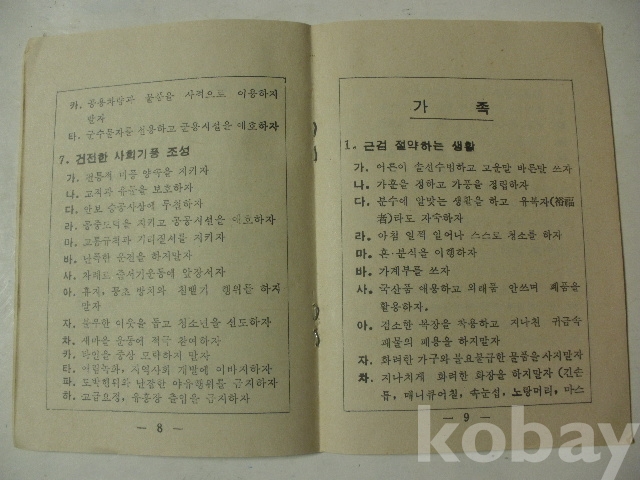 카. 공용차량과 물품을 사적으로 이용하지
말자
타. 군수물자를 선용하고 군용시설을 애호하자
7. 건전한 사회기풍 조성
가. 전통적 미풍 양속을 지키자
나. 고적과 유물을 보호하자
다. 안보 승공사상에 투철하자
라. 공중도덕을 지키고 공공시설을 애호하자
마. 교통규칙과 거리질서를 지키자
바. 난폭한 운전을 하지말자
사. 차례로 줄서기운동에 앞장서자
아. 휴지, 꽁초 방치와 침뱉기 행위를 하지
말자
자. 불우한 이웃을 돕고 청소년을 선도하자
차. 새마을 운동에 적극 참여하자
카. 타인을 중상 모략하지 말자
타. 지역사회 개발에 이바지하자
파. 도박행위와 난잡한 야유행위를 금지하자
하. 고급요정, 유흥장 출입을 금지하자
— 8 —
가 족
1. 근검 절약하는 생활
가. 어른이 솔선수범하고 고운말 바른말 쓰자
나. 가훈을 정하고 가풍을 정립하자
다. 분수에 알맞는 생활을 하고 유복자(裕福
者)타도 자숙하자
라. 아침 일찍 일어나 스스로 청소를 하자
마. 혼·분식을 이행하자
바. 가계부를 쓰자
사. 국산품 애용하고 외래품 안쓰며 폐품을
활용하자.
아. 검소한 복장을 착용하고 지나친 귀금속
패물의 패용을 하지말자
자. 화려한 가구와 불요불급한 물품을 사지말자
차. 지나치게 화려한 화장을 하지말자 (긴손
톱, 매니큐어칠, 속눈섭, 노랑머리, 마스
— 9 —
kobay